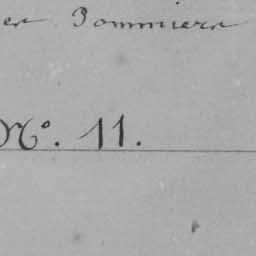 es Pommiers
No. 11.